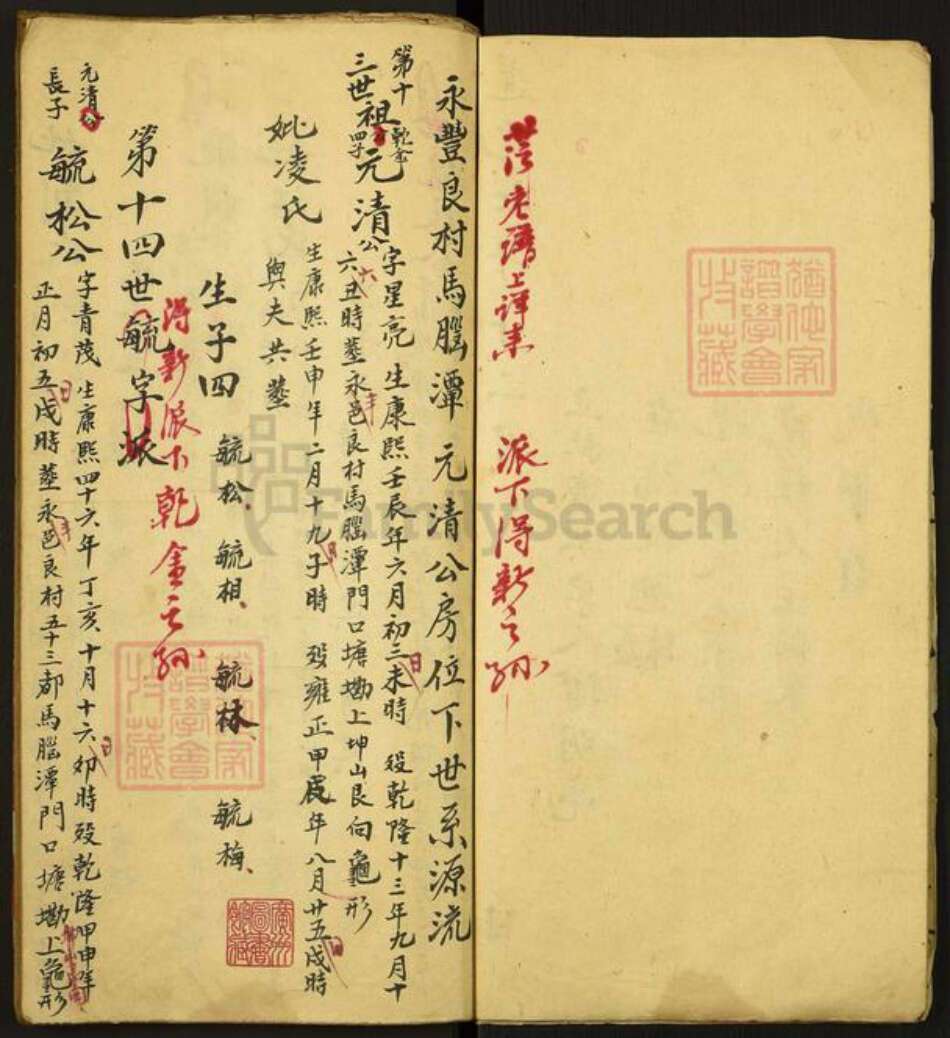 派下得新之孙
永豐良村馬腦潭元清公房位下世系源流
第十
三世祖乾金四子元清公字星亮生康熙壬辰年六月初三日未時殁乾隆十三年九月十
六日丑時塟永豐邑良村馬腦潭門口塘墈上坤山艮向龜形
妣凌氏生康熙壬申年二月十九日子時殁雍正甲辰年八月廿五日戌時
與夫共塟
生子四 毓松、毓相、毓林、毓梅、
得新派下乾金之孙
第十四世毓字派
元清公
長子毓松公字青茂生康熙四十六年丁亥十月十六日卯時殁乾隆甲申年
正月初五日戌時塟永豐邑良村五十三都馬腦潭門口塘墈上龜形
FamilySearch